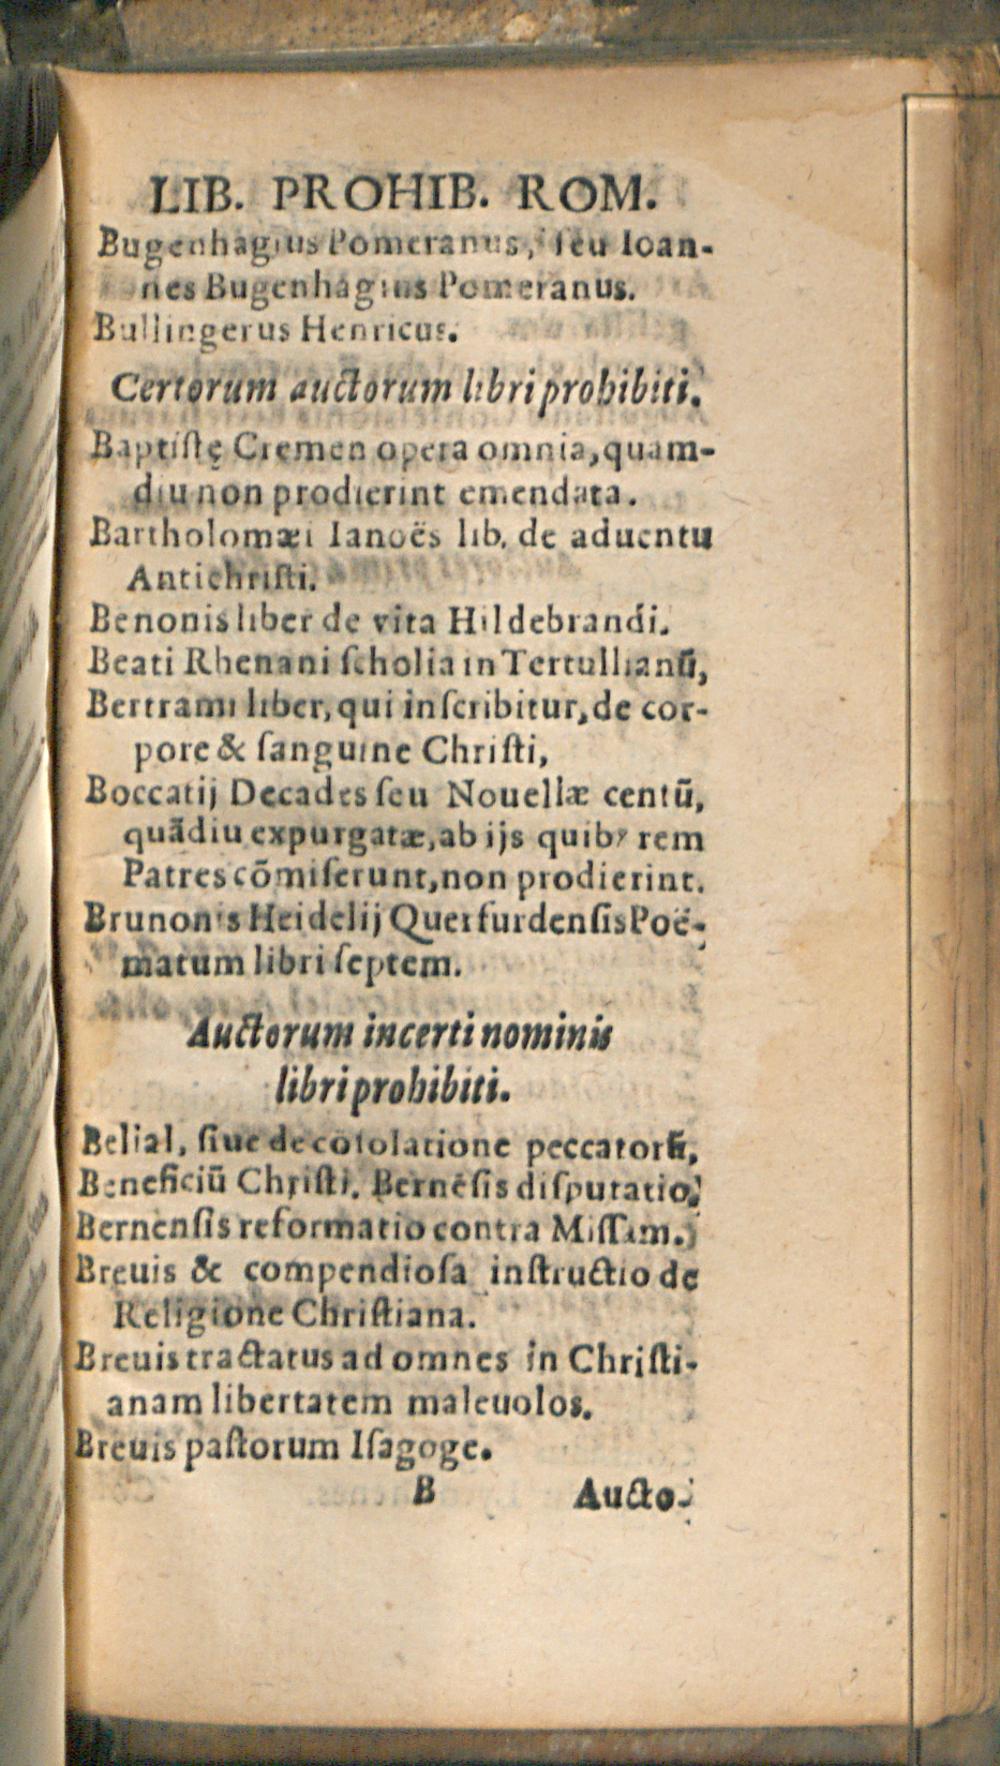 LIB. PROHIB. ROM.
Bugenhagius Pomeranus, ſeu Ioan-
nes Bugenhagius Pomeranus.
Bullingerus Henricus.
Certorum auctorum libri prohibiti.
Baptiſtę Cremen opera omnia, quam-
diu non prodierint emendata.
Bartholomæi Ianoës lib. de aduentu
Antichriſti.
Benonis liber de vita Hildebrandi.
Beati Rhenani ſcholia in Tertullianū,
Bertrami liber, qui inſcribitur, de cor-
pore & ſanguine Chriſti,
Boccatij Decades ſeu Nouellæ centū,
quādiu expurgatæ, ab ijs quibꝰ rem
Patres cōmiſerunt, non prodierint.
Brunonis Heidelij Querfurdenſis Poë-
matum libri ſeptem.
Auctorum incerti nominis
libri prohibiti.
Belial, ſiue de cōſolatione peccatorū,
Beneficiū Chriſti. Bernēſis diſputatio.
Bernenſis reformatio contra Miſſam.
Breuis & compendioſa inſtructio de
Religione Chriſtiana.
Breuis tractatus ad omnes in Chriſti-
anam libertatem maleuolos.
Breuis paſtorum Iſagoge.
B Aucto-